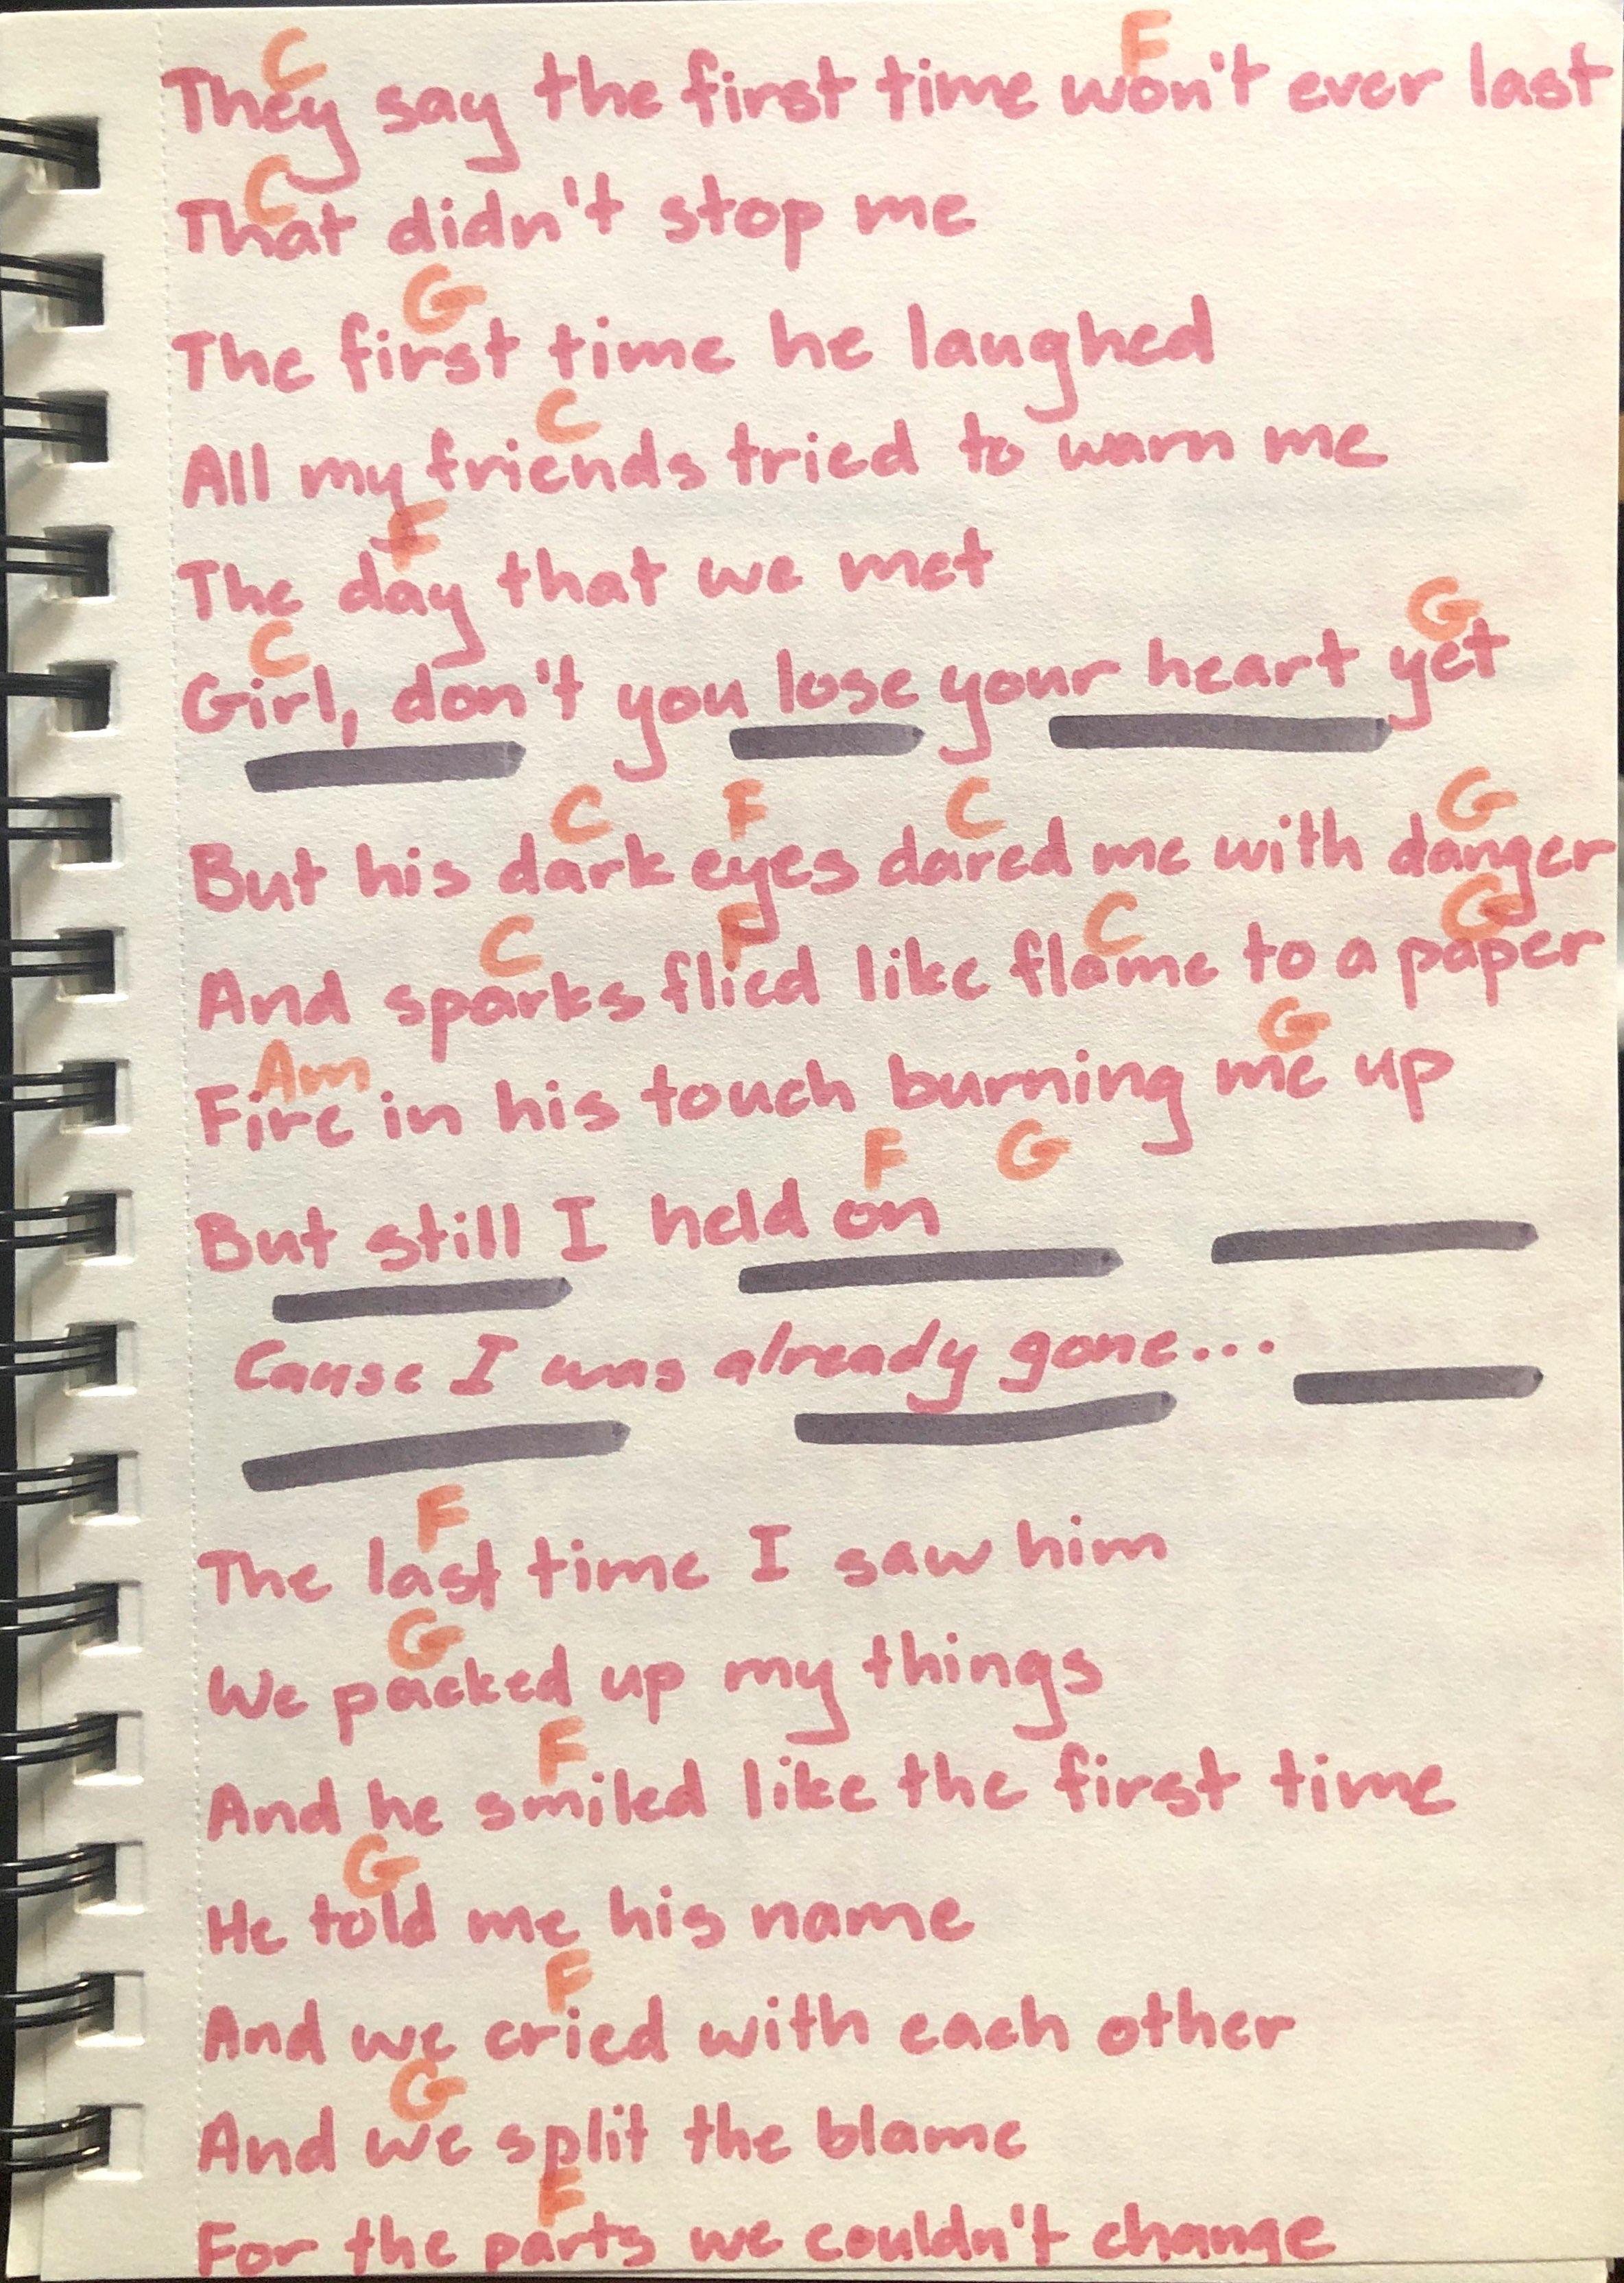 C F
They say the first time won't ever last
C
That didn't stop me
G
The first time he laughed
C
All my friends tried to warn me
F
The day that we met
C G
Girl, don't you lose your heart yet
C F C G
But his dark eyes dared me with danger
C F C G
And sparks flied like flame to a paper
Am G
Fire in his touch burning me up
F G
But still I held on
Cause I was already gone...
F
The last time I saw him
G
We packed up my things
F
And he smiled like the first time
G
He told me his name
F
And we cried with each other
G
And we split the blame
F
For the parts we couldn't change